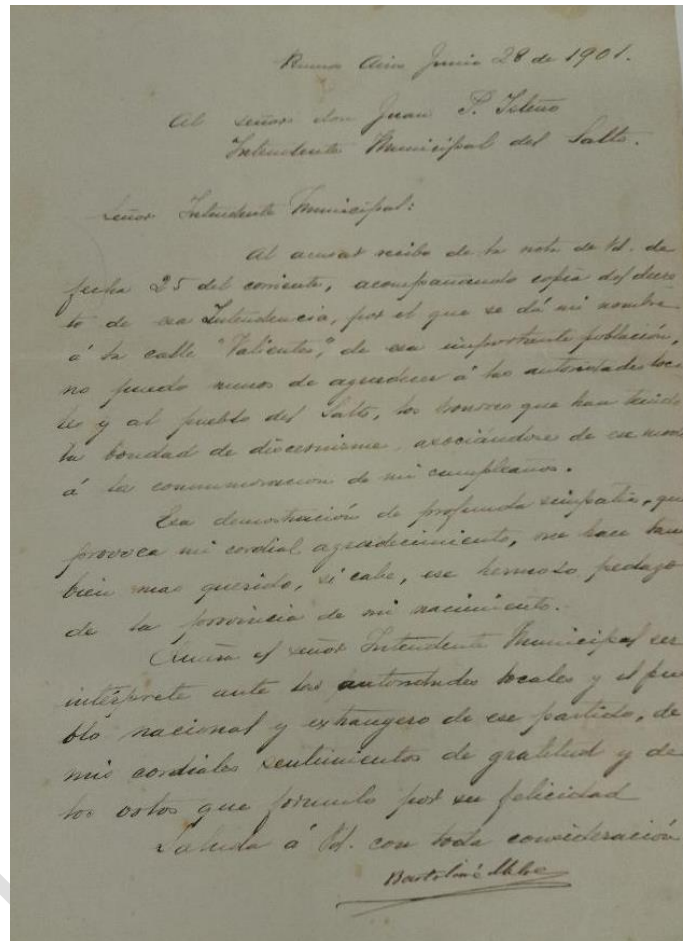 Buenos Aires Junio 28 de 1901.
Al señor don Juan P. Isleño
Intendente Municipal del Salto.
Señor Intendente Municipal:
Al acusar recibo de la nota de Vd. de
fecha 25 del corriente, acompañando copia del decre
to de esa Intendencia, por el que se dá mi nombre
á la calle "Valientes," de esa importante población,
no puedo menos de agradecer á las autoridades loca
les y al pueblo del Salto, los honores que han tenido
la bondad de discernirme, asociándose de ese modo
á la conmemoracion de mi cumpleaños.
Esa demostración de profunda simpatia, que
provoca mi cordial agradecimiento, me hace tam
bien mas querido, si cabe, ese hermoso pedazo
de la provincia de mi nacimiento.
Quiera el señor Intendente Municipal ser
intérprete ante las autoridades locales y el pue
blo nacional y extrangero de ese partido, de
mis cordiales sentimientos de gratitud y de
los votos que formulo por su felicidad
Saluda á Vd. con toda consideración
Bartolomé Mitre